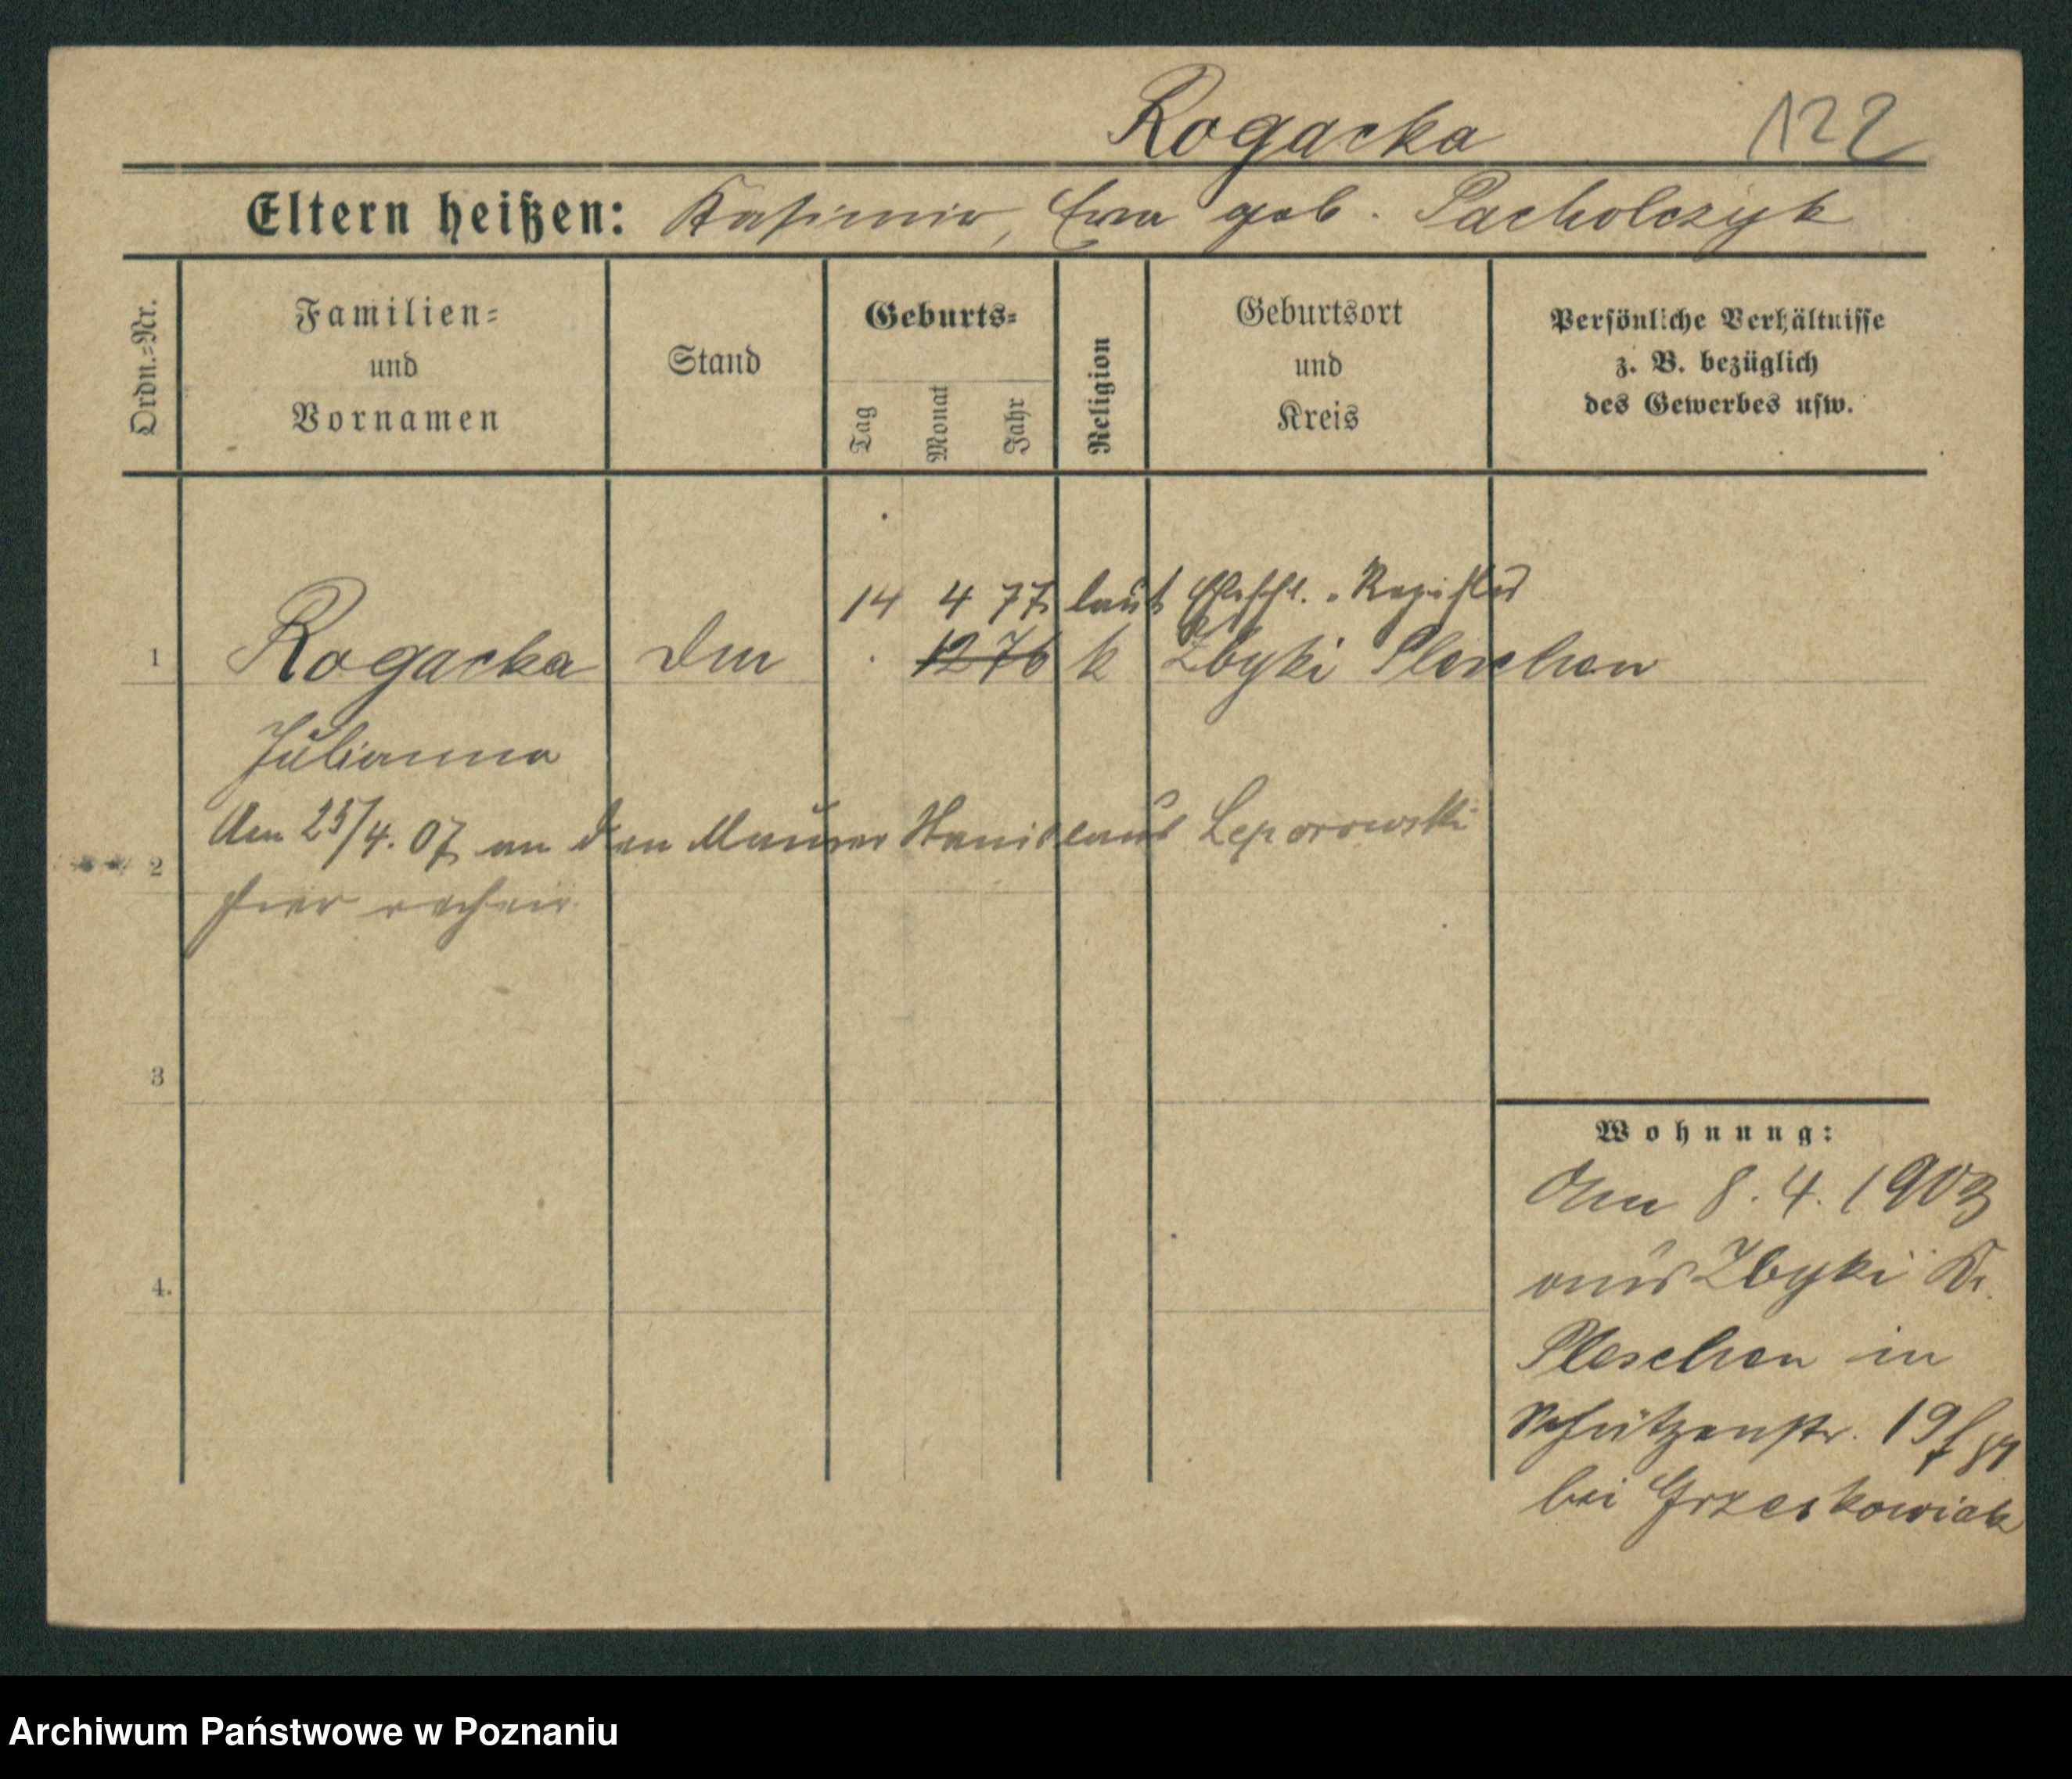 Rogacka 122
Eltern heißen: Kasimir, Ewa geb. Pacholczyk
Ordn.=Nr.
Familien=
und
Vornamen
Stand
Geburts=
Tag
Monat
Jahr
Religion
Geburtsort
und
Kreis
Persönliche Verhältnisse
z. B. bezüglich
des Gewerbes usw.
14 4 77 laut Register
1 Rogacka 12 76 k Zbyki Pleschen
Julianna
Am 25/4. 07 an den Maurer Stanislaus Leporowski
2
hier
3
4.
Wohnung:
Am 8. 4. 1903
aus Zbyki Kr.
Pleschen in
Schützenstr. 19
bei Grzeskowiak
Archiwum Państwowe w Poznaniu